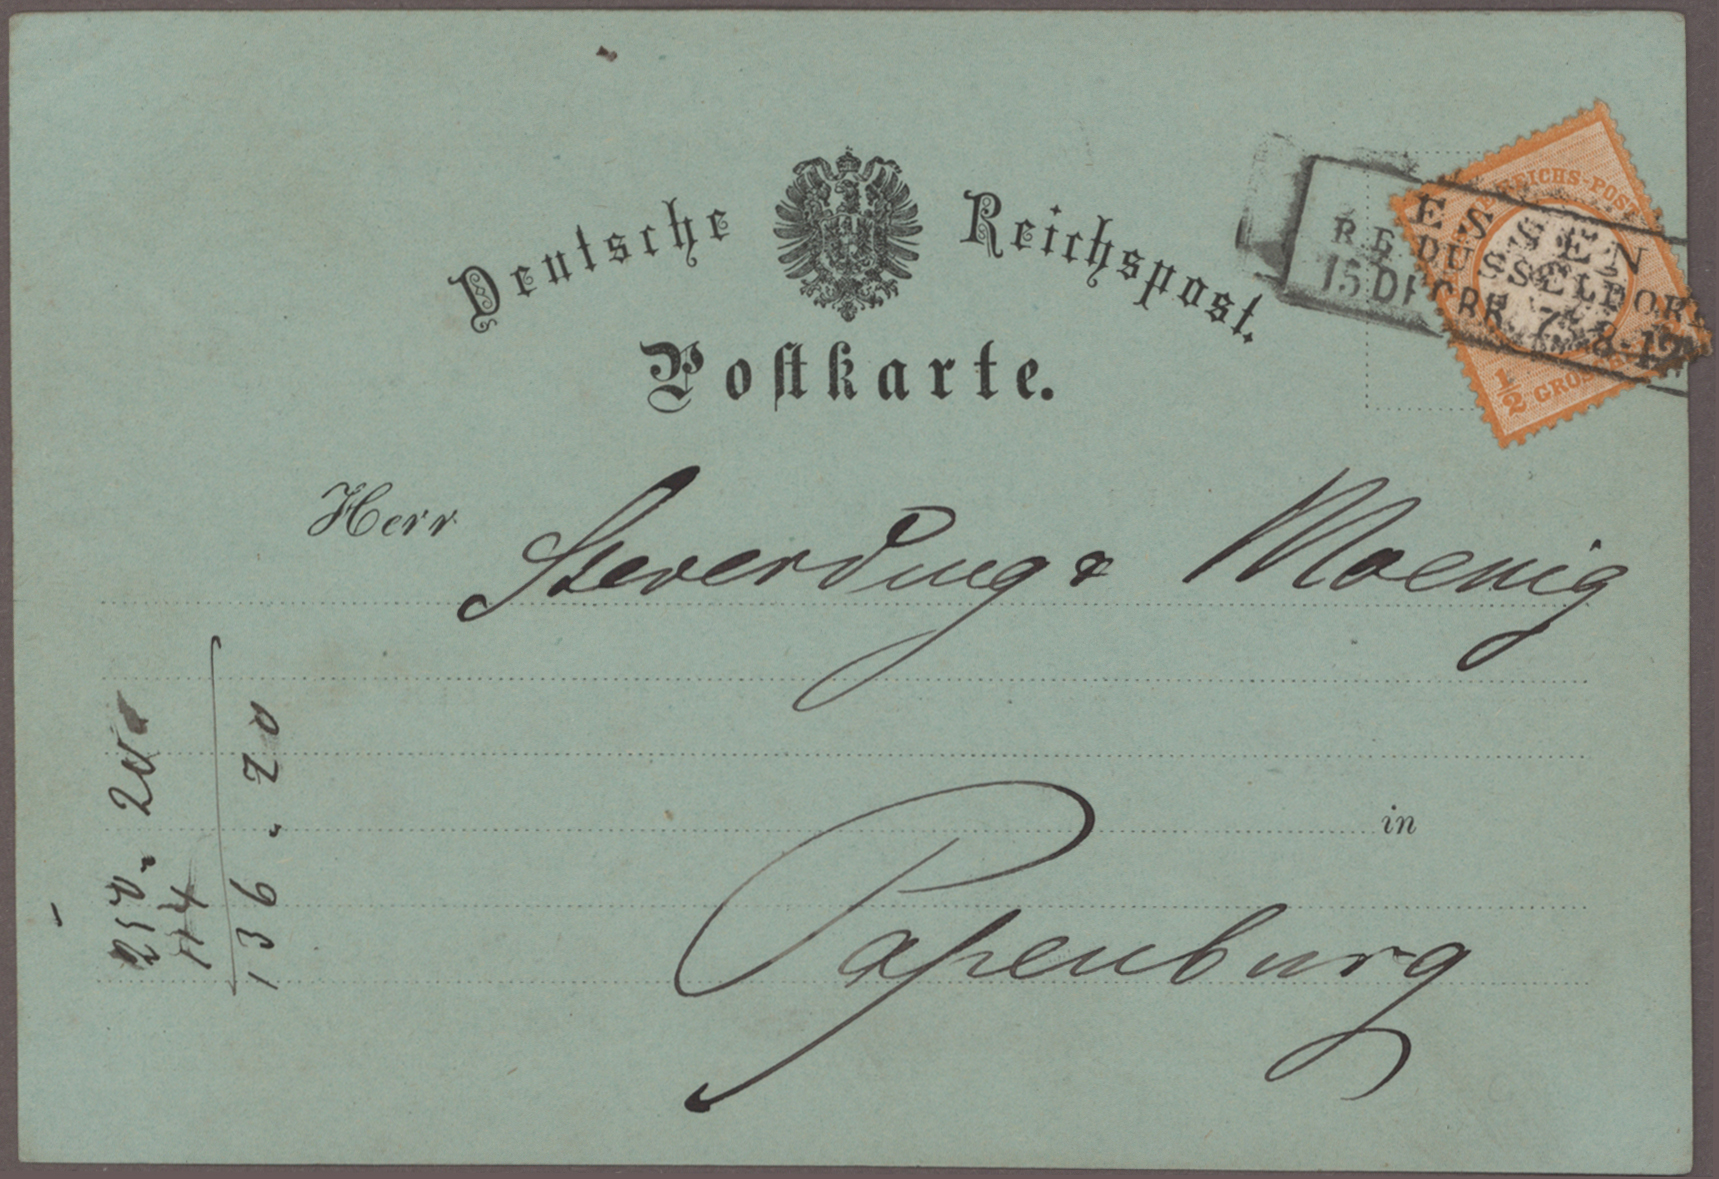 Deutsche Reichspost.
Postkarte.
REICHS-POST
½ GROSCHEN
ESSEN
REG BZ DUSSELDORF
15 DECBR. 73 8-12
Herr Steverding & Moenig
in
Papenburg
250 . 20
114
136 . 20